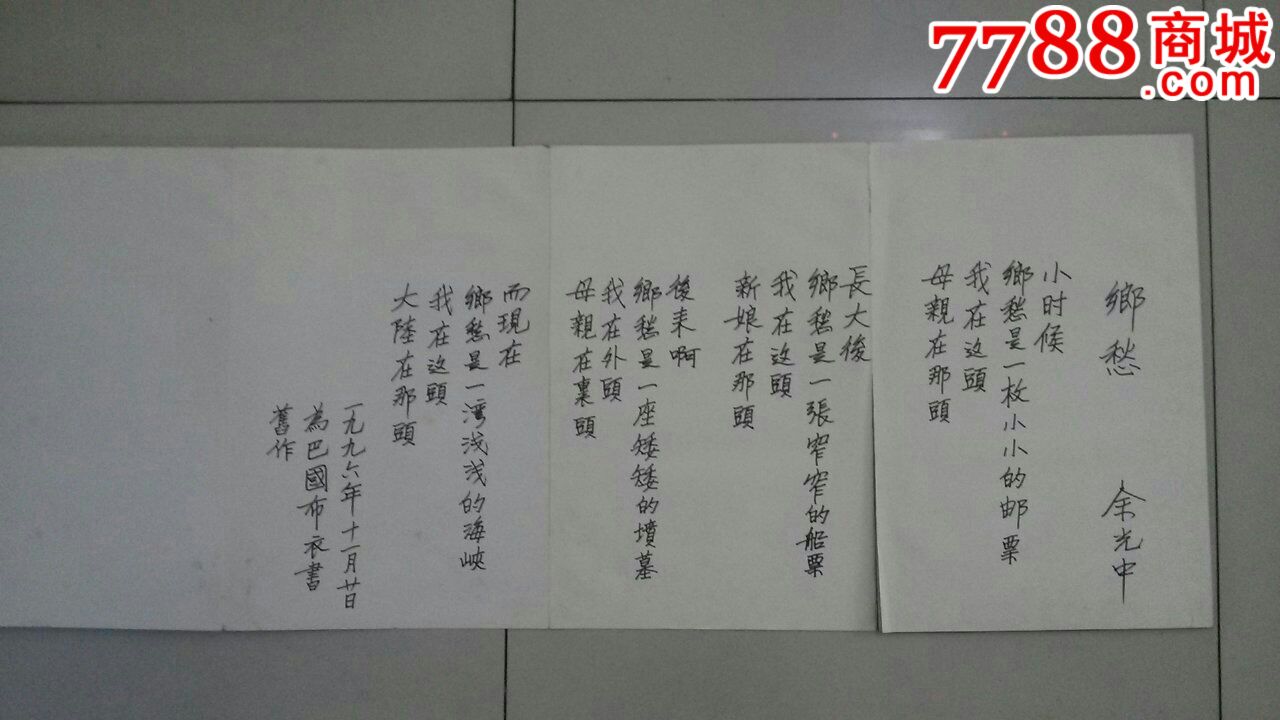 7788商城
.com
鄉愁 余光中
小时候
鄉愁是一枚小小的邮票
我在這頭
母親在那頭
長大後
鄉愁是一張窄窄的船票
我在這頭
新娘在那頭
後来啊
鄉愁是一座矮矮的墳墓
我在外頭
母親在裏頭
而現在
鄉愁是一湾浅浅的海峽
我在這頭
大陸在那頭
一九九六年十一月廿日
為巴國布衣書
舊作